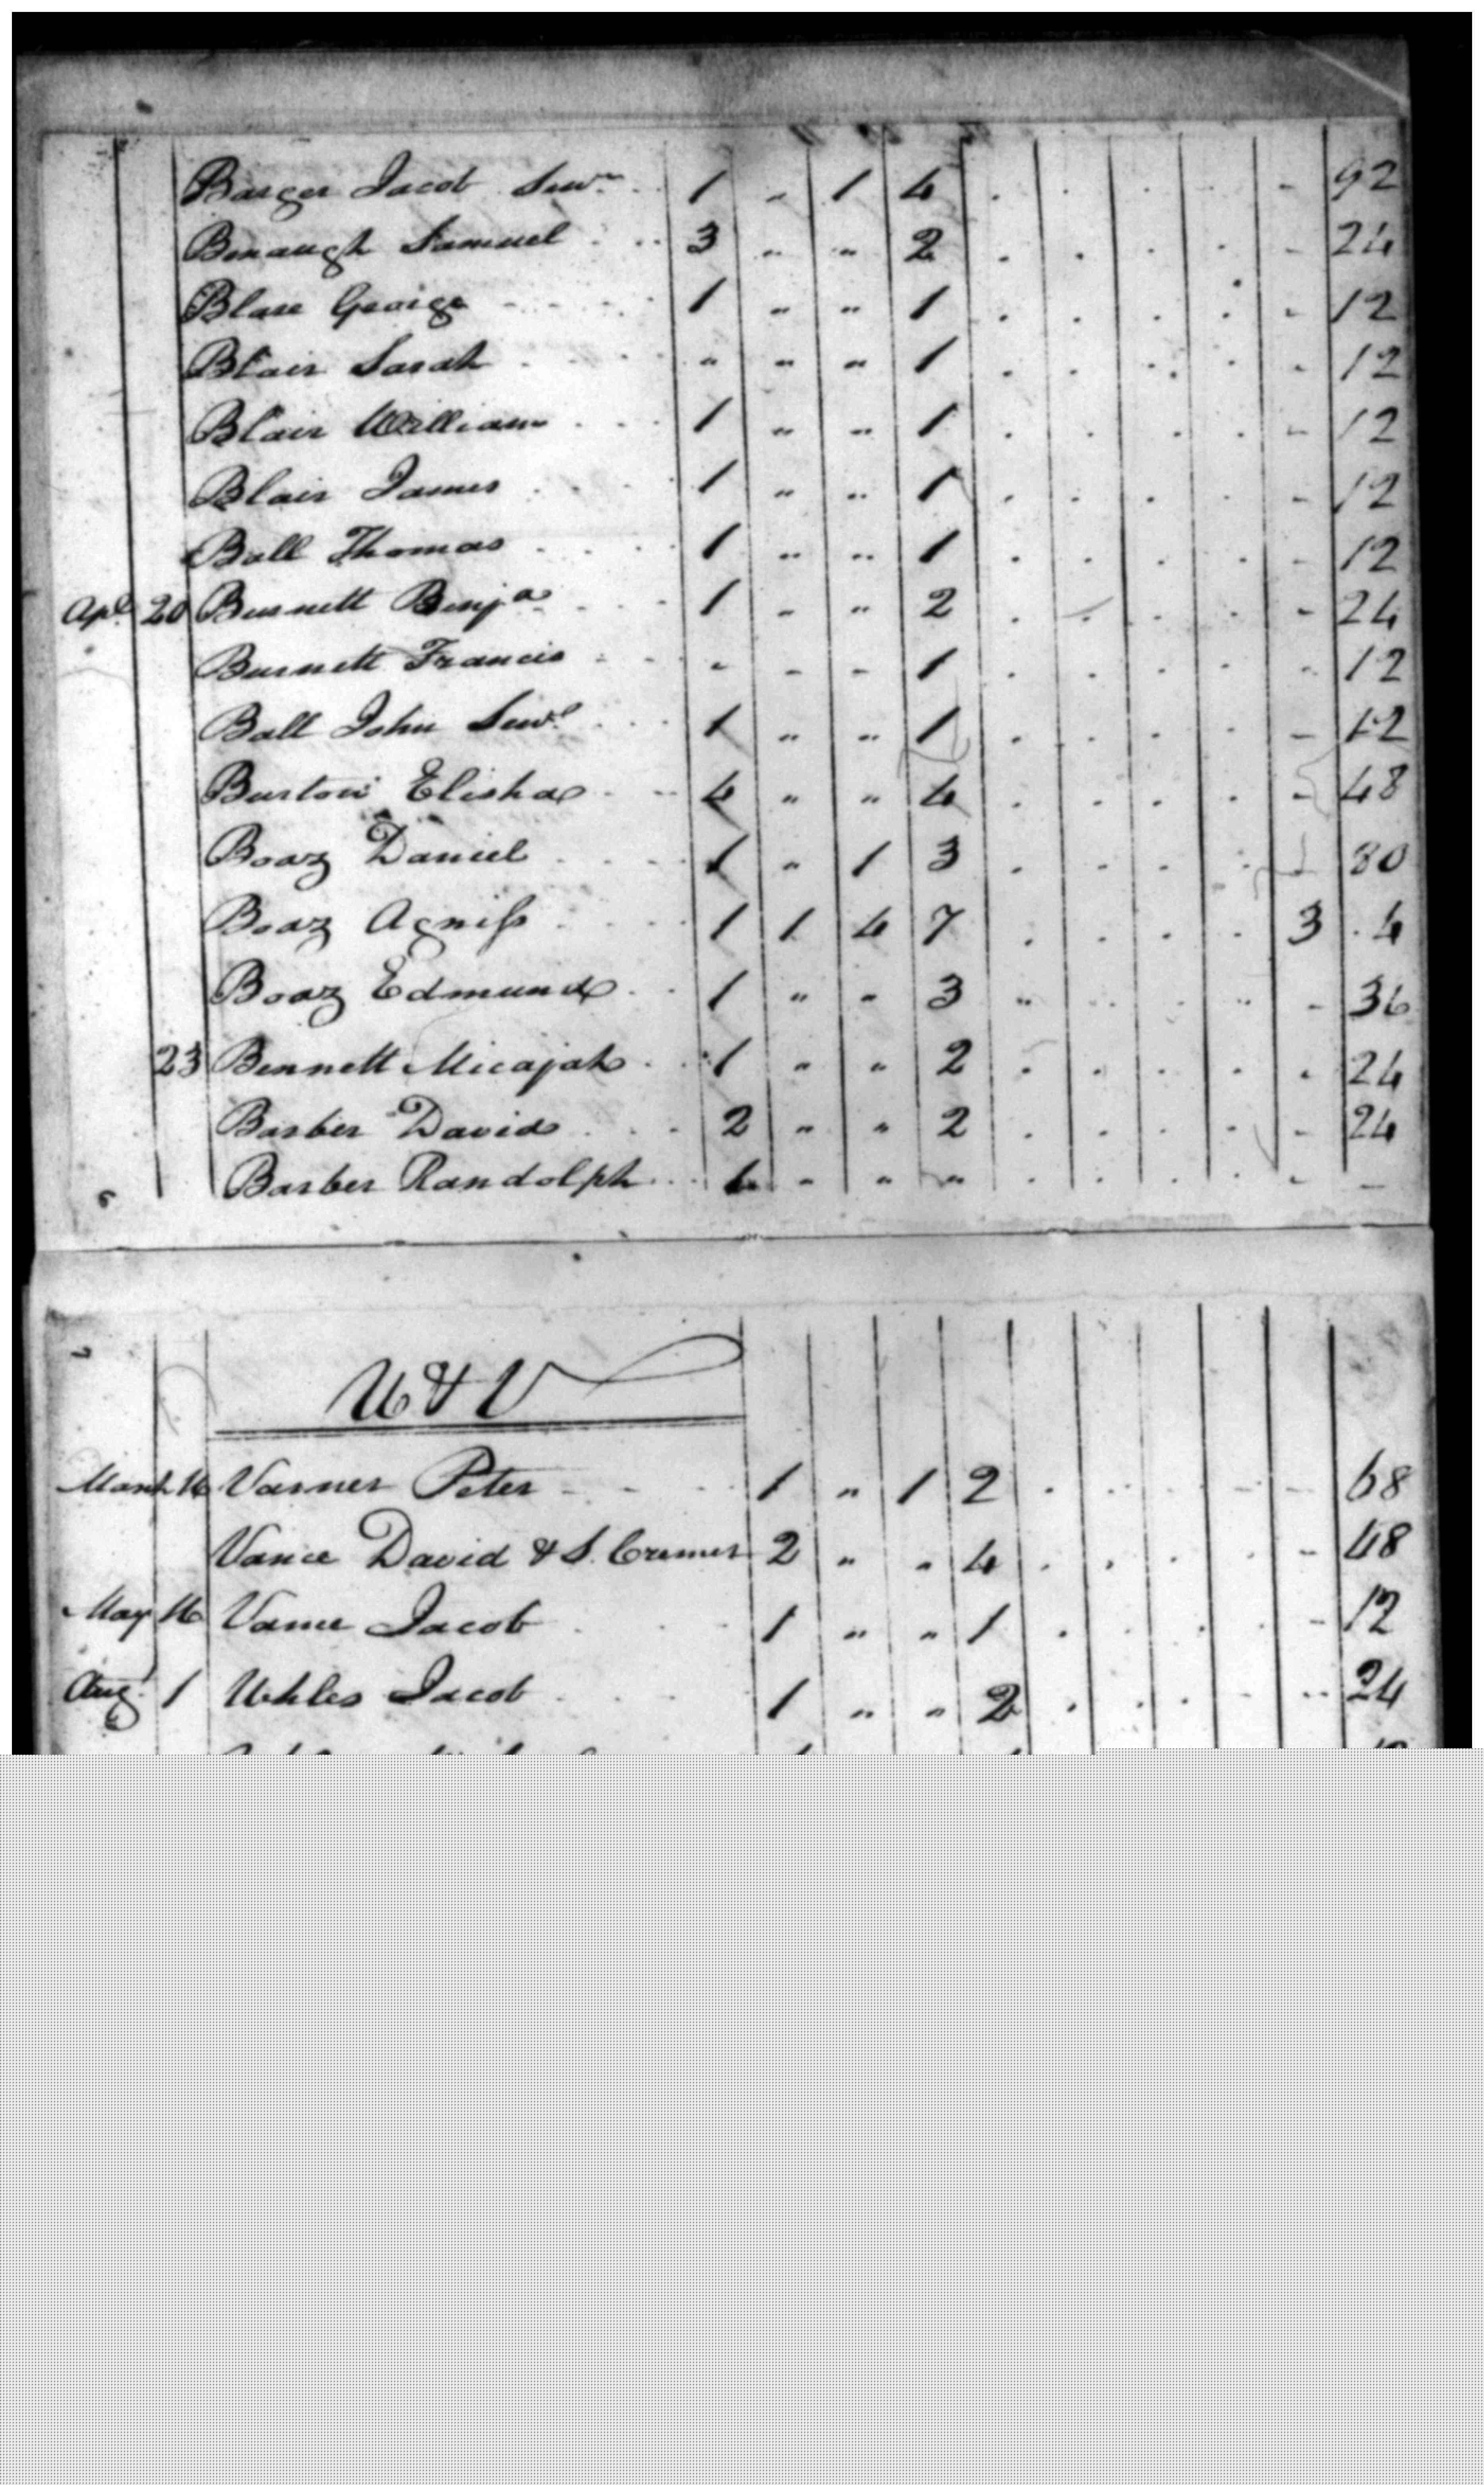 Barger Jacob Senr 1 " 1 4 . . . . - 92
Benaugh Samuel 3 " " 2 . . . . - 24
Blare George 1 " " 1 . . . . - 12
Blair Sarah " " " 1 . . . . - 12
Blair William 1 " " 1 . . . . - 12
Blair James 1 " " 1 . . . . - 12
Ball Thomas 1 " " 1 . . . . - 12
Apl 20 Burnett Benja 1 - " 2 . . . . - 24
Burnett Francis - - - 1 . . . . - 12
Ball John Senr 1 " " 1 . . . . - 12
Burton Elisha 4 " " 4 . . . . - 48
Boaz Daniel 1 " 1 3 . . . . - 80
Boaz Agniss 1 1 4 7 . . . . 3 . 4
Boaz Edmund 1 " - 3 " . . " - 36
23 Bennett Micajah 1 " " 2 . . . . . 24
Barber David 2 " " 2 . . . . - 24
Barber Randolph 1 " " " . . . . - -
6
7
U & V
March 16 Varner Peter 1 " 1 2 . . . - - 68
Vance David & S. Cremer 2 " " 4 . . . . - 48
May 16 Vance Jacob 1 " " 1 . . . . - 12
Aug. 1 Uhles Jacob 1 " " 2 . . . - - 24